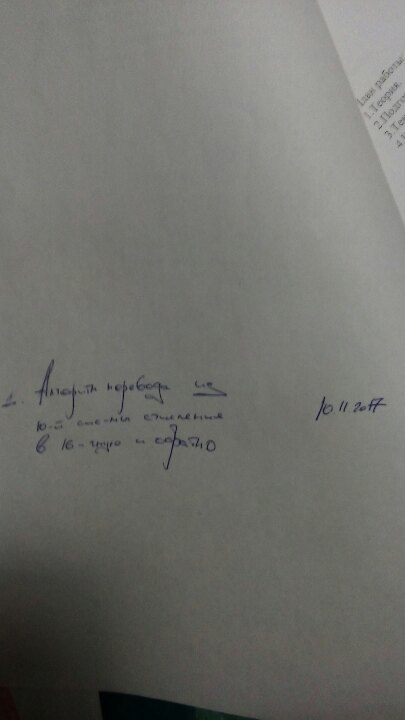 1. Алгоритм перевода из
10-й сис-мы счисления
в 16-чную и обратно
10.11.2017
План работы
1.Теория.
2.Подго
3.Те
4.